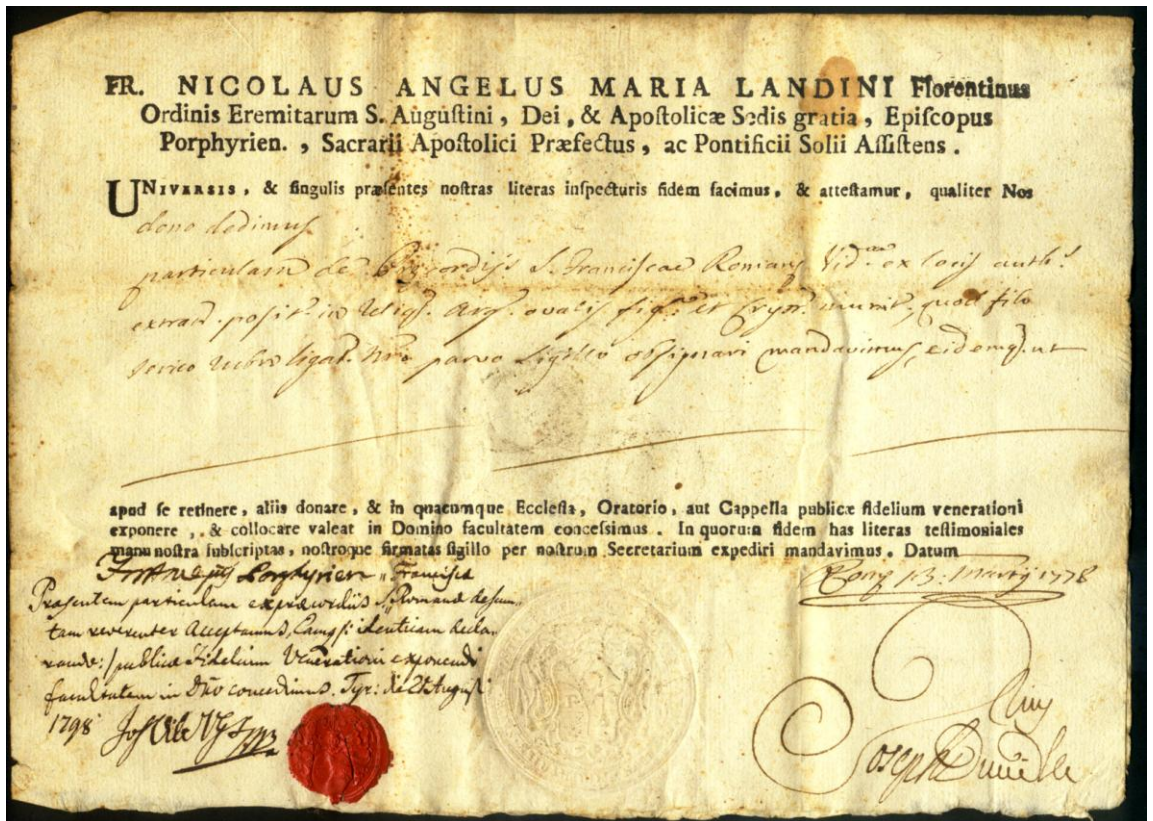 FR. NICOLAUS ANGELUS MARIA LANDINI Florentinus
Ordinis Eremitarum S. Auguſtini, Dei, & Apoſtolicæ Sedis gratia, Epiſcopus
Porphyrien., Sacrarii Apoſtolici Præfectus, ac Pontificii Solii Aſſiſtens.
UNIVERSIS, & ſingulis præſentes noſtras literas inſpecturis fidem facimus, & atteſtamur, qualiter Nos
dono dedimus
particulam de Precordijs S. Franciscae Romanę Vid. ex locis auth.
extract. posit. in ovalis fig. et Cryst. munit., quod filo
serico rubro ligat. parvo sigillo obsignari mandavimus, eidemq. ut
apud ſe retinere, aliis donare, & in quacumque Eccleſia, Oratorio, aut Cappella publicæ fidelium venerationi
exponere, & collocare valeat in Domino facultatem conceſsimus. In quorum fidem has literas teſtimoniales
manu noſtra ſubſcriptas, noſtroque firmatas ſigillo per noſtrum Secretarium expediri mandavimus. Datum
Porphyrien Francisca
13. Martij 1778
Præsentem particulam ex præcordiis S. Romana desum-
tam reverenter Acceptamus,
publicæ Fidelium Venerationi exponendi
facultatem in Dno concedimus. Tyr: die 21 August
1798
Joseph